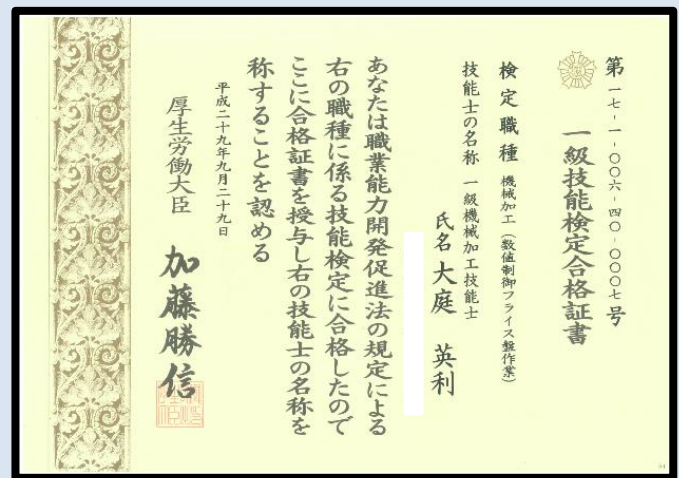 第一七-一-〇〇六-四〇-〇〇〇七号
一級技能検定合格証書
検定職種 機械加工（数値制御フライス盤作業）
技能士の名称 一級機械加工技能士
氏名 大庭 英利
あなたは職業能力開発促進法の規定による
右の職種に係る技能検定に合格したので
ここに合格証書を授与し右の技能士の名称を
称することを認める
平成二十九年九月二十九日
厚生労働大臣 加藤勝信